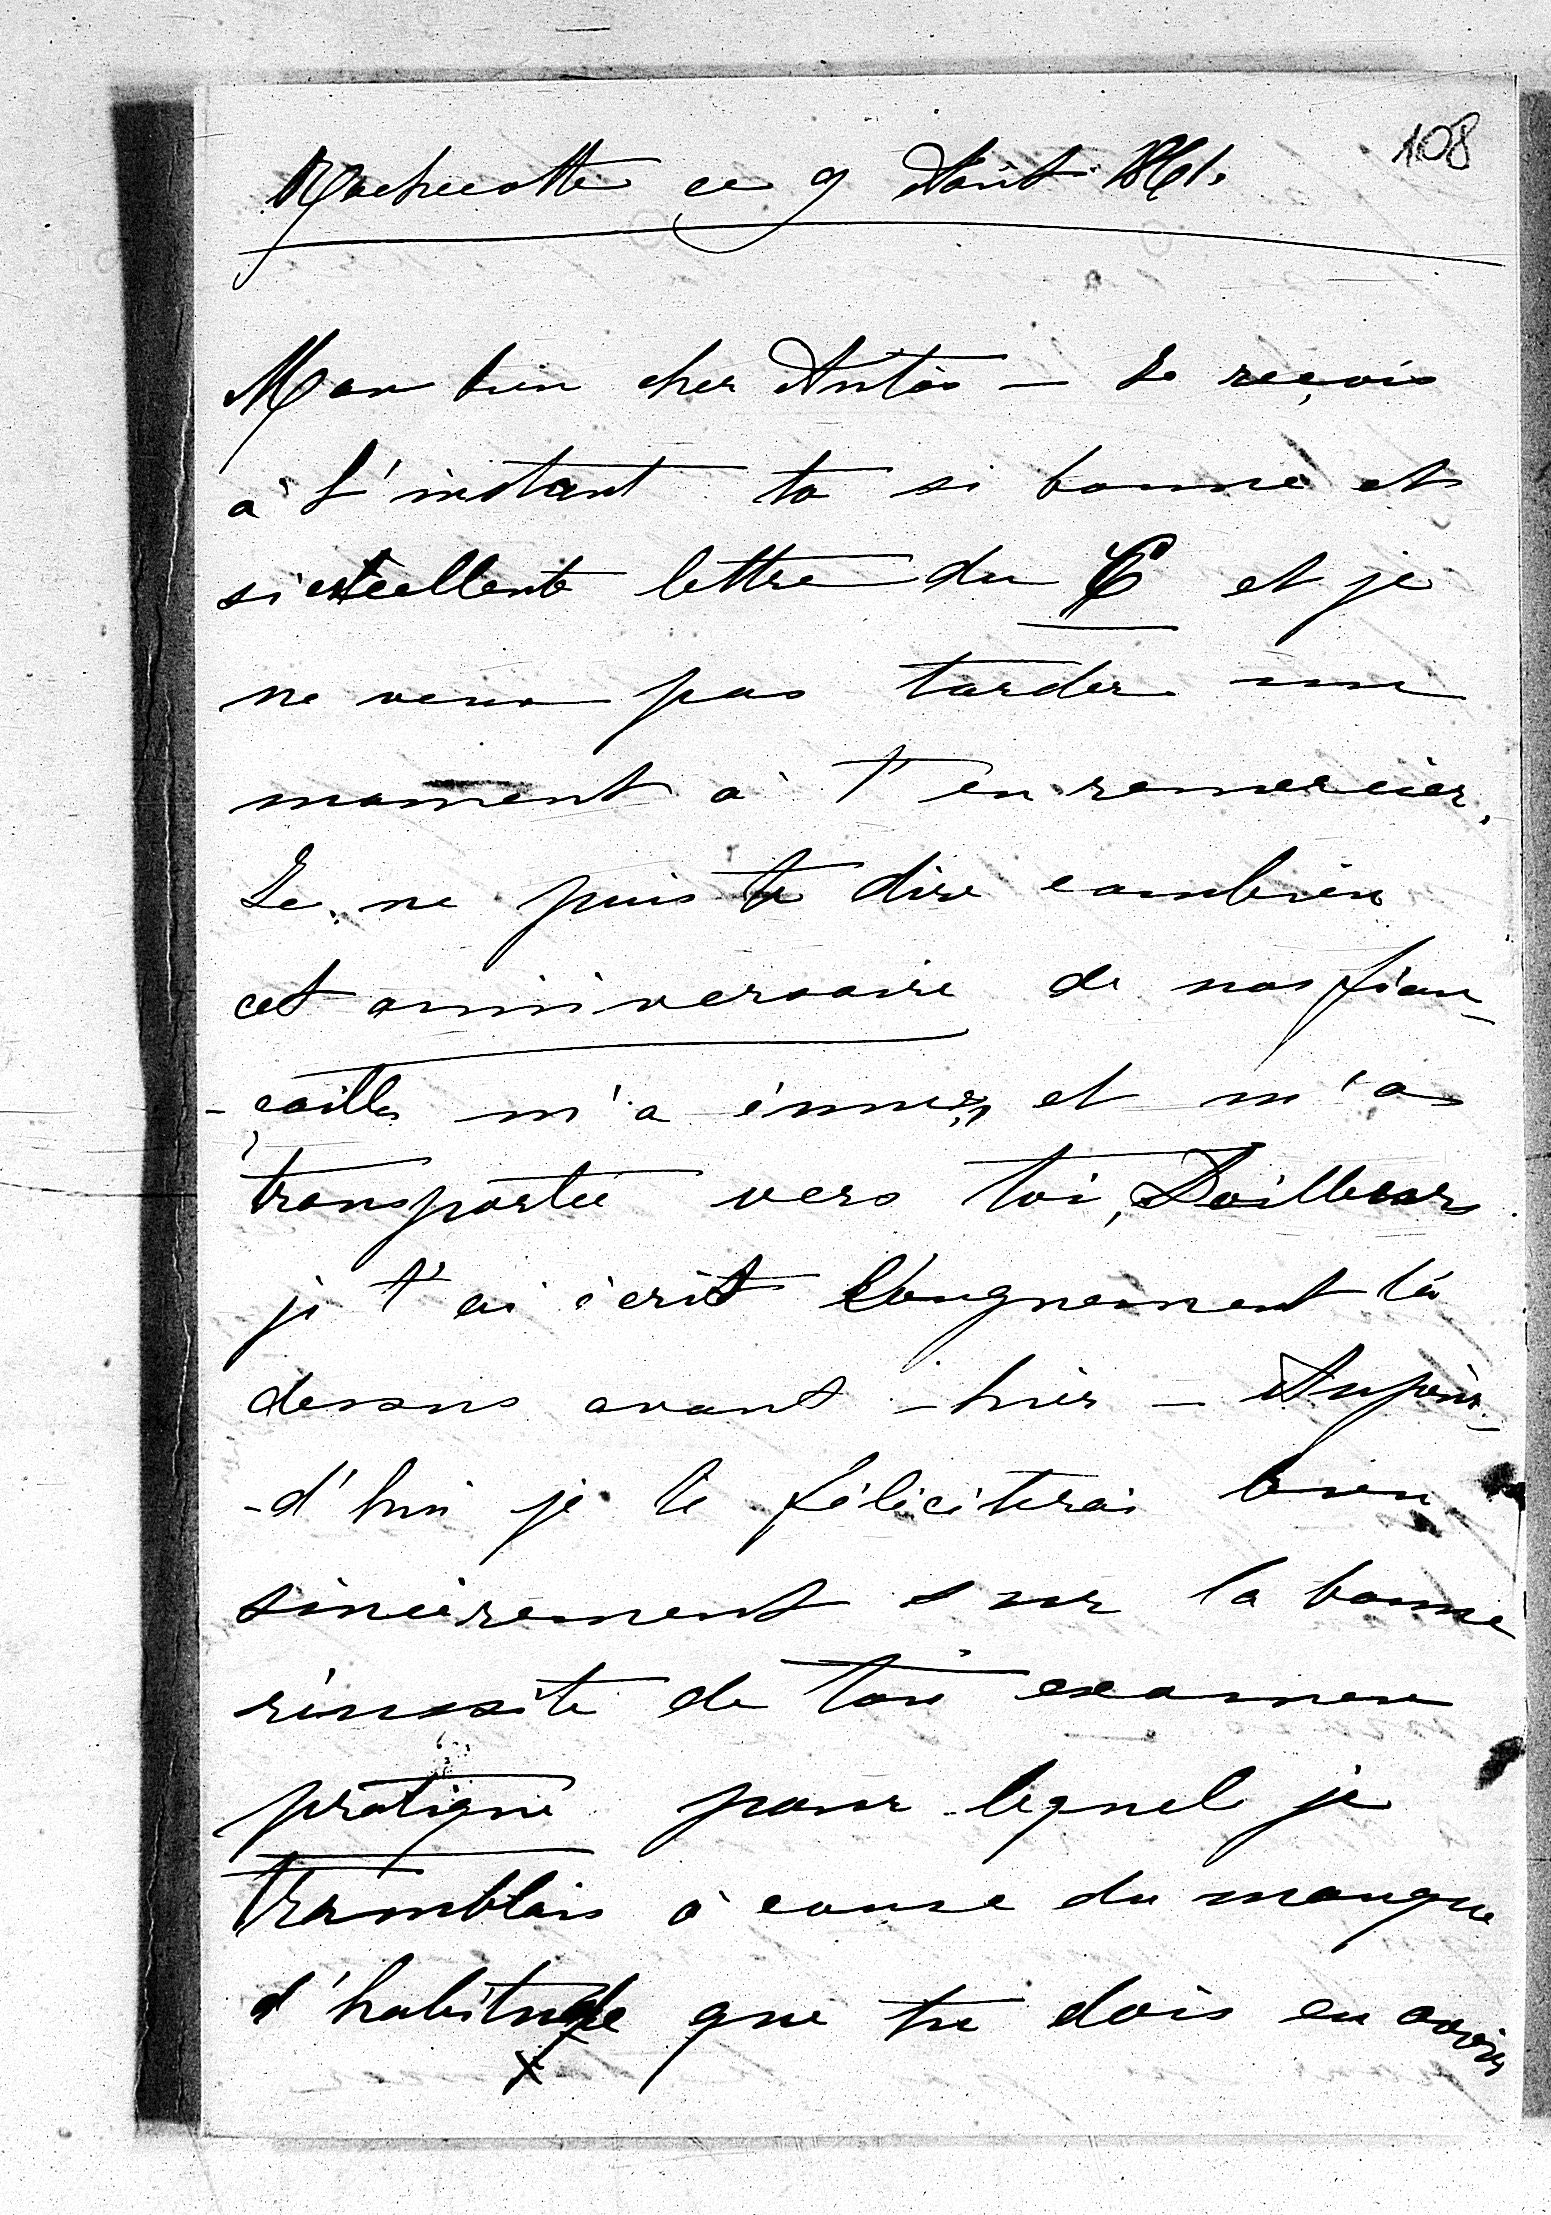 108
Rochecotte ce 9 Août 1861.
Mon bien cher Antôs — Je reçois
à l'instant ta si bonne et
si excellente lettre du 6 et je
ne veux pas tarder un
moment à t'en remercier.
Je ne puis te dire combien
cet anniversaire de nos fian-
-çailles m'a émue, et m'a
transportée vers toi, D'ailleurs
je t'ai écrit longuement là
dessus avant-hier — Aujour-
-d'hui je te féliciterai bien
sincèrement sur la bonne
réussite de ton examen
pratique pour lequel je
tremblais à cause du manque
d'habitude que tu dois en avoir